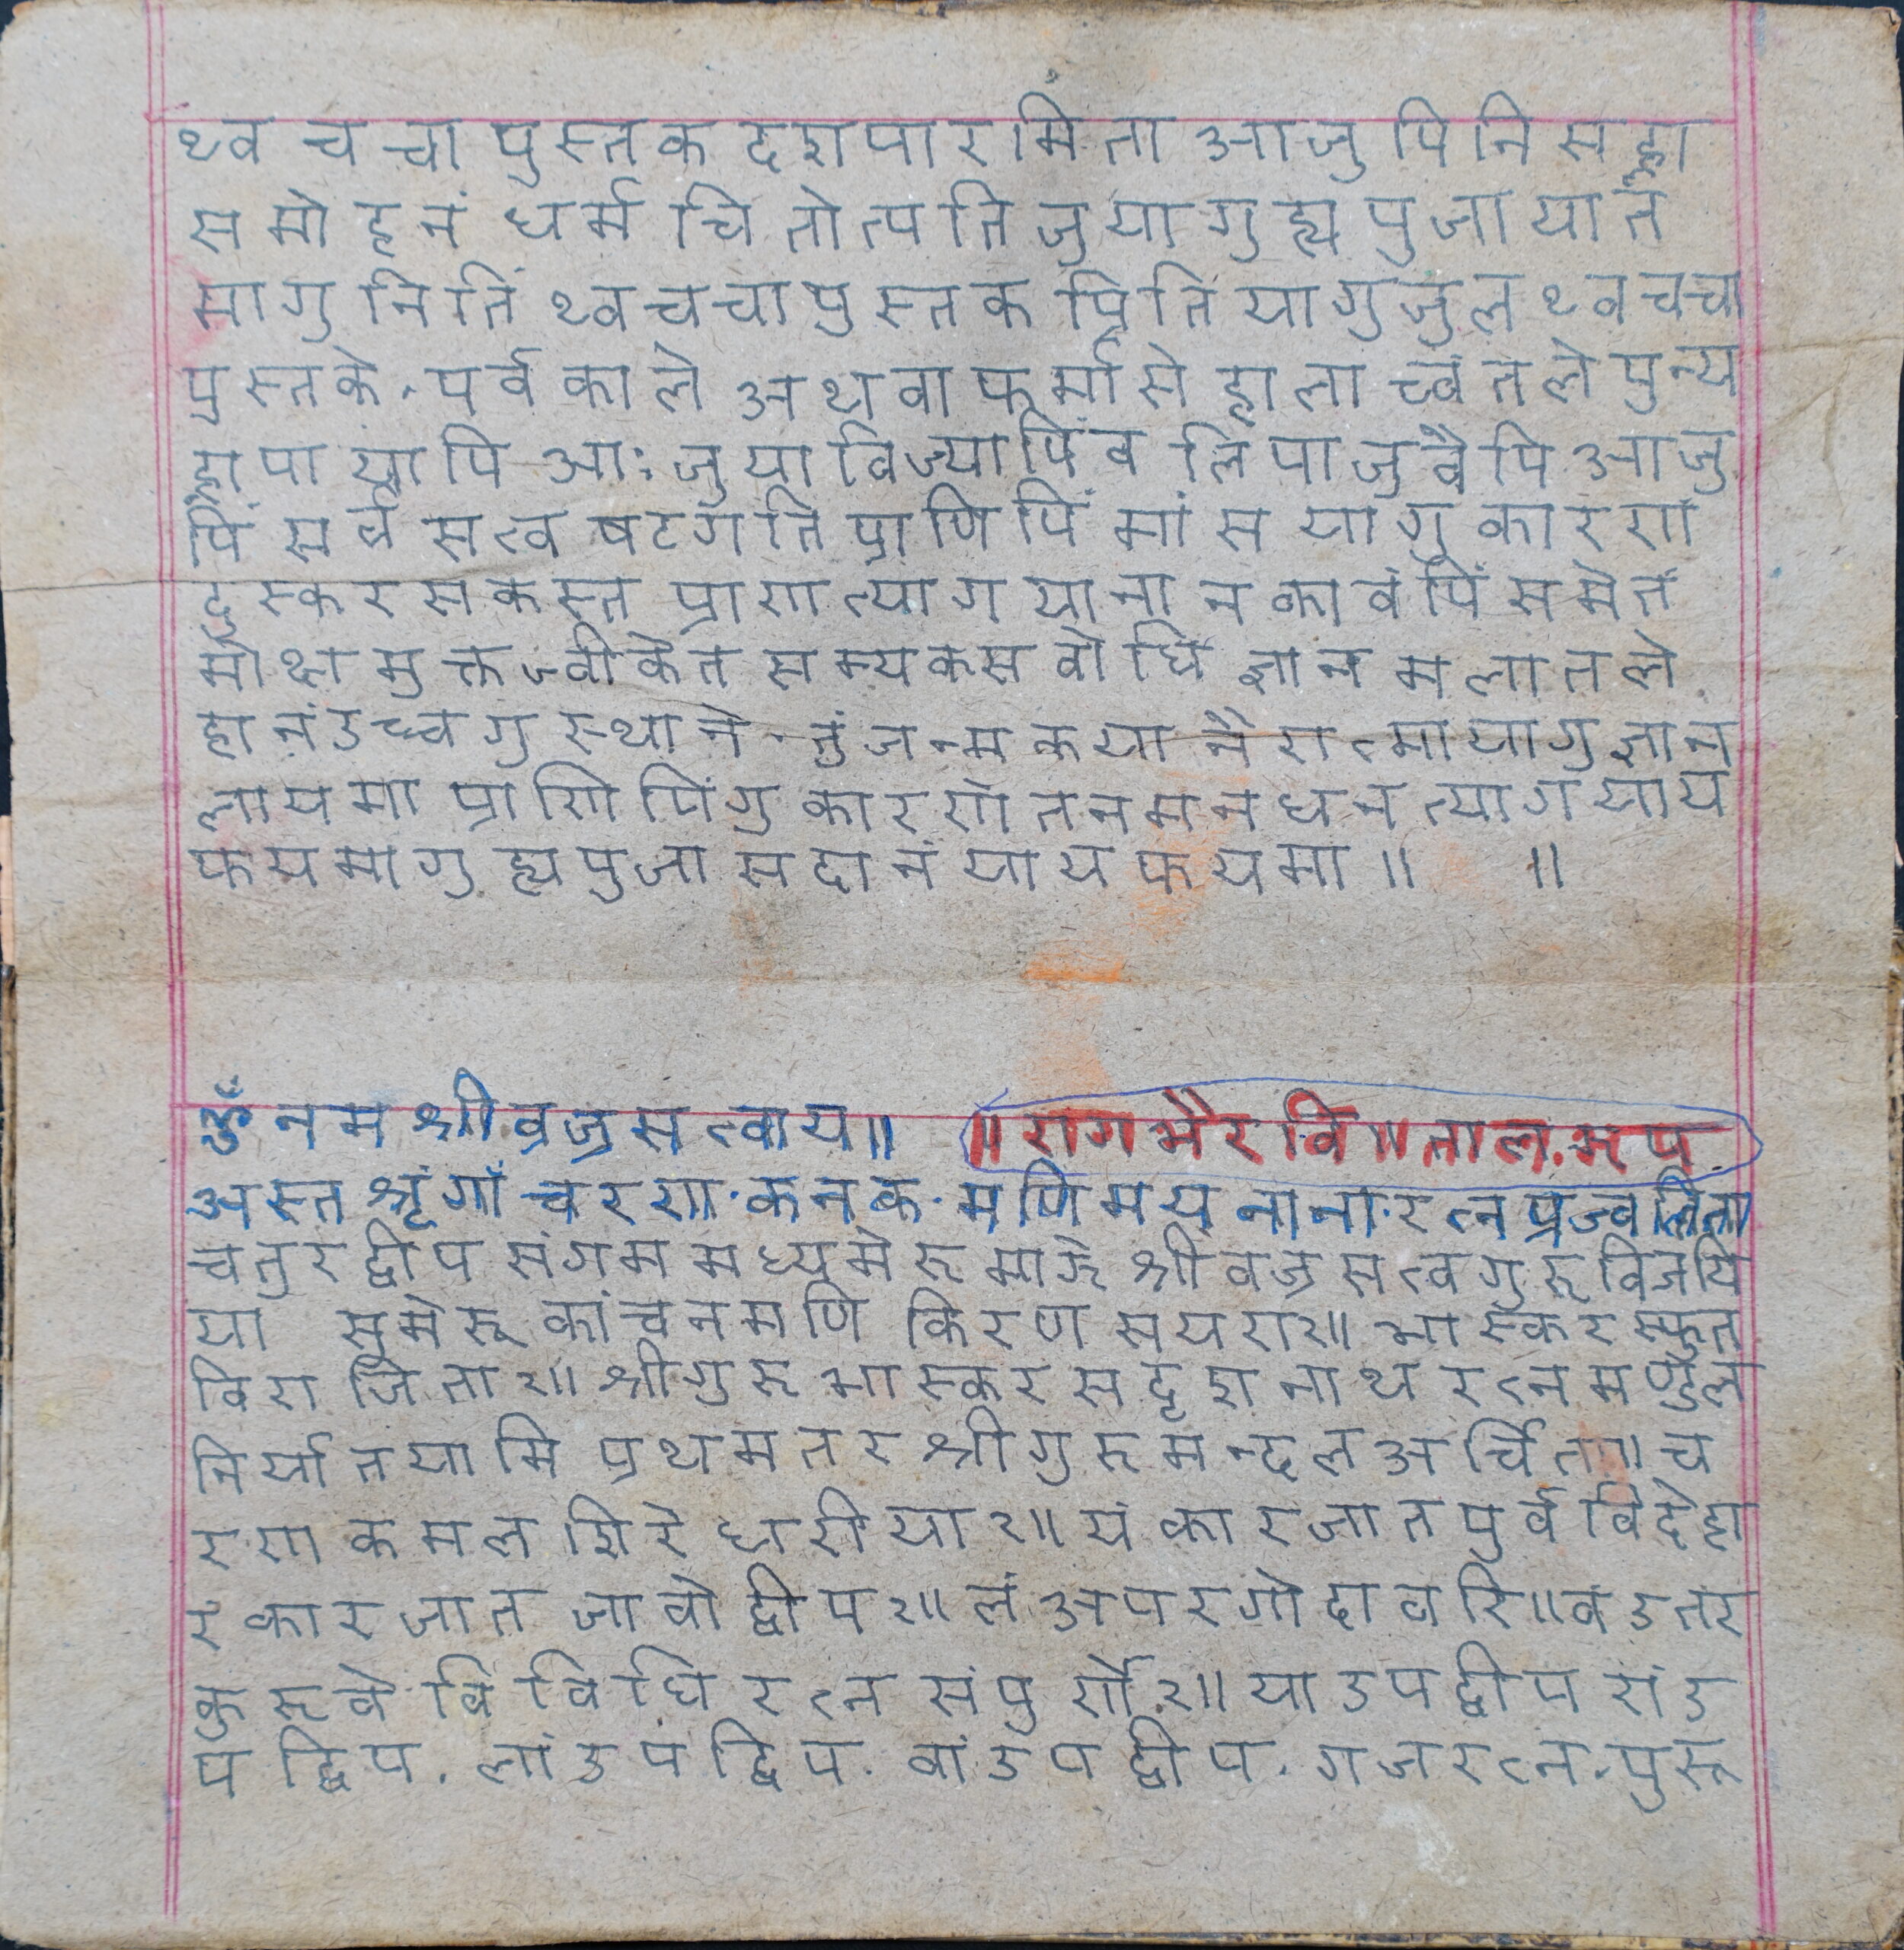 थ्व चचा पुस्तक दशपारमिता आजु पिनि सह्ना
समोहनं धर्म चितोत्पति जुया गुह्य पुजा यात
मागु निर्तिं थ्व चचा पुस्तक प्रिति यागु जुल थ्व चचा
पुस्तके, पर्व काले अथवा फर्मासे हाला च्वंतले पुन्य
ह्नापा यापि आः जुया विज्यापिंव लिपा जुवैपि आजु
पिं सर्व सत्व षटगति प्राणिपिं मांस यागु कारणे
दुस्कर सकस्त प्राण त्याग याना न कावंपिं समेत
मोक्ष मुक्त ज्वीकेत सम्यकस वोधि ज्ञान मलातले
हानं उच्चगु स्थाने नुं जन्म कया नैरात्मा यागु ज्ञान
लायमा प्राणि पिंगु कारणे तन मन धन त्याग याय
फयमा गुह्य पुजा सदानं याय फयमा ॥ ॥
ॐ नम श्री वज्रसत्वाय ॥ ॥ राग भैरवि ॥ ताल. झप
अस्त श्रृंगाँ चरण. कनक. मणिमय नाना. रत्न प्रज्वलिता
चतुरद्वीप संगम मध्यमेरू माझे श्री वज्रसत्व गुरू विजयि
या समेरू कांचन मणि किरण सयरा २॥ भास्कर स्फुत
विराजिता २॥ श्री गुरू भास्कर सदृश नाथ रत्न मण्डल
निर्यातयामि प्रथमतर श्री गुरू मन्दल अर्चिता ॥ च
रण कमल शिरे धरीया २॥ यं कारजात पुर्व विदेहा
रं कारजात जावो द्वीप २॥ लं अपर गोदावरि ॥ वं उत्तर
कुरूवे विविधि रत्न संपुर्णे २॥ या उपद्वीप रां उ
प द्विप. लां उपं द्विप. वां उपद्वीप. गज रत्न. पुरू